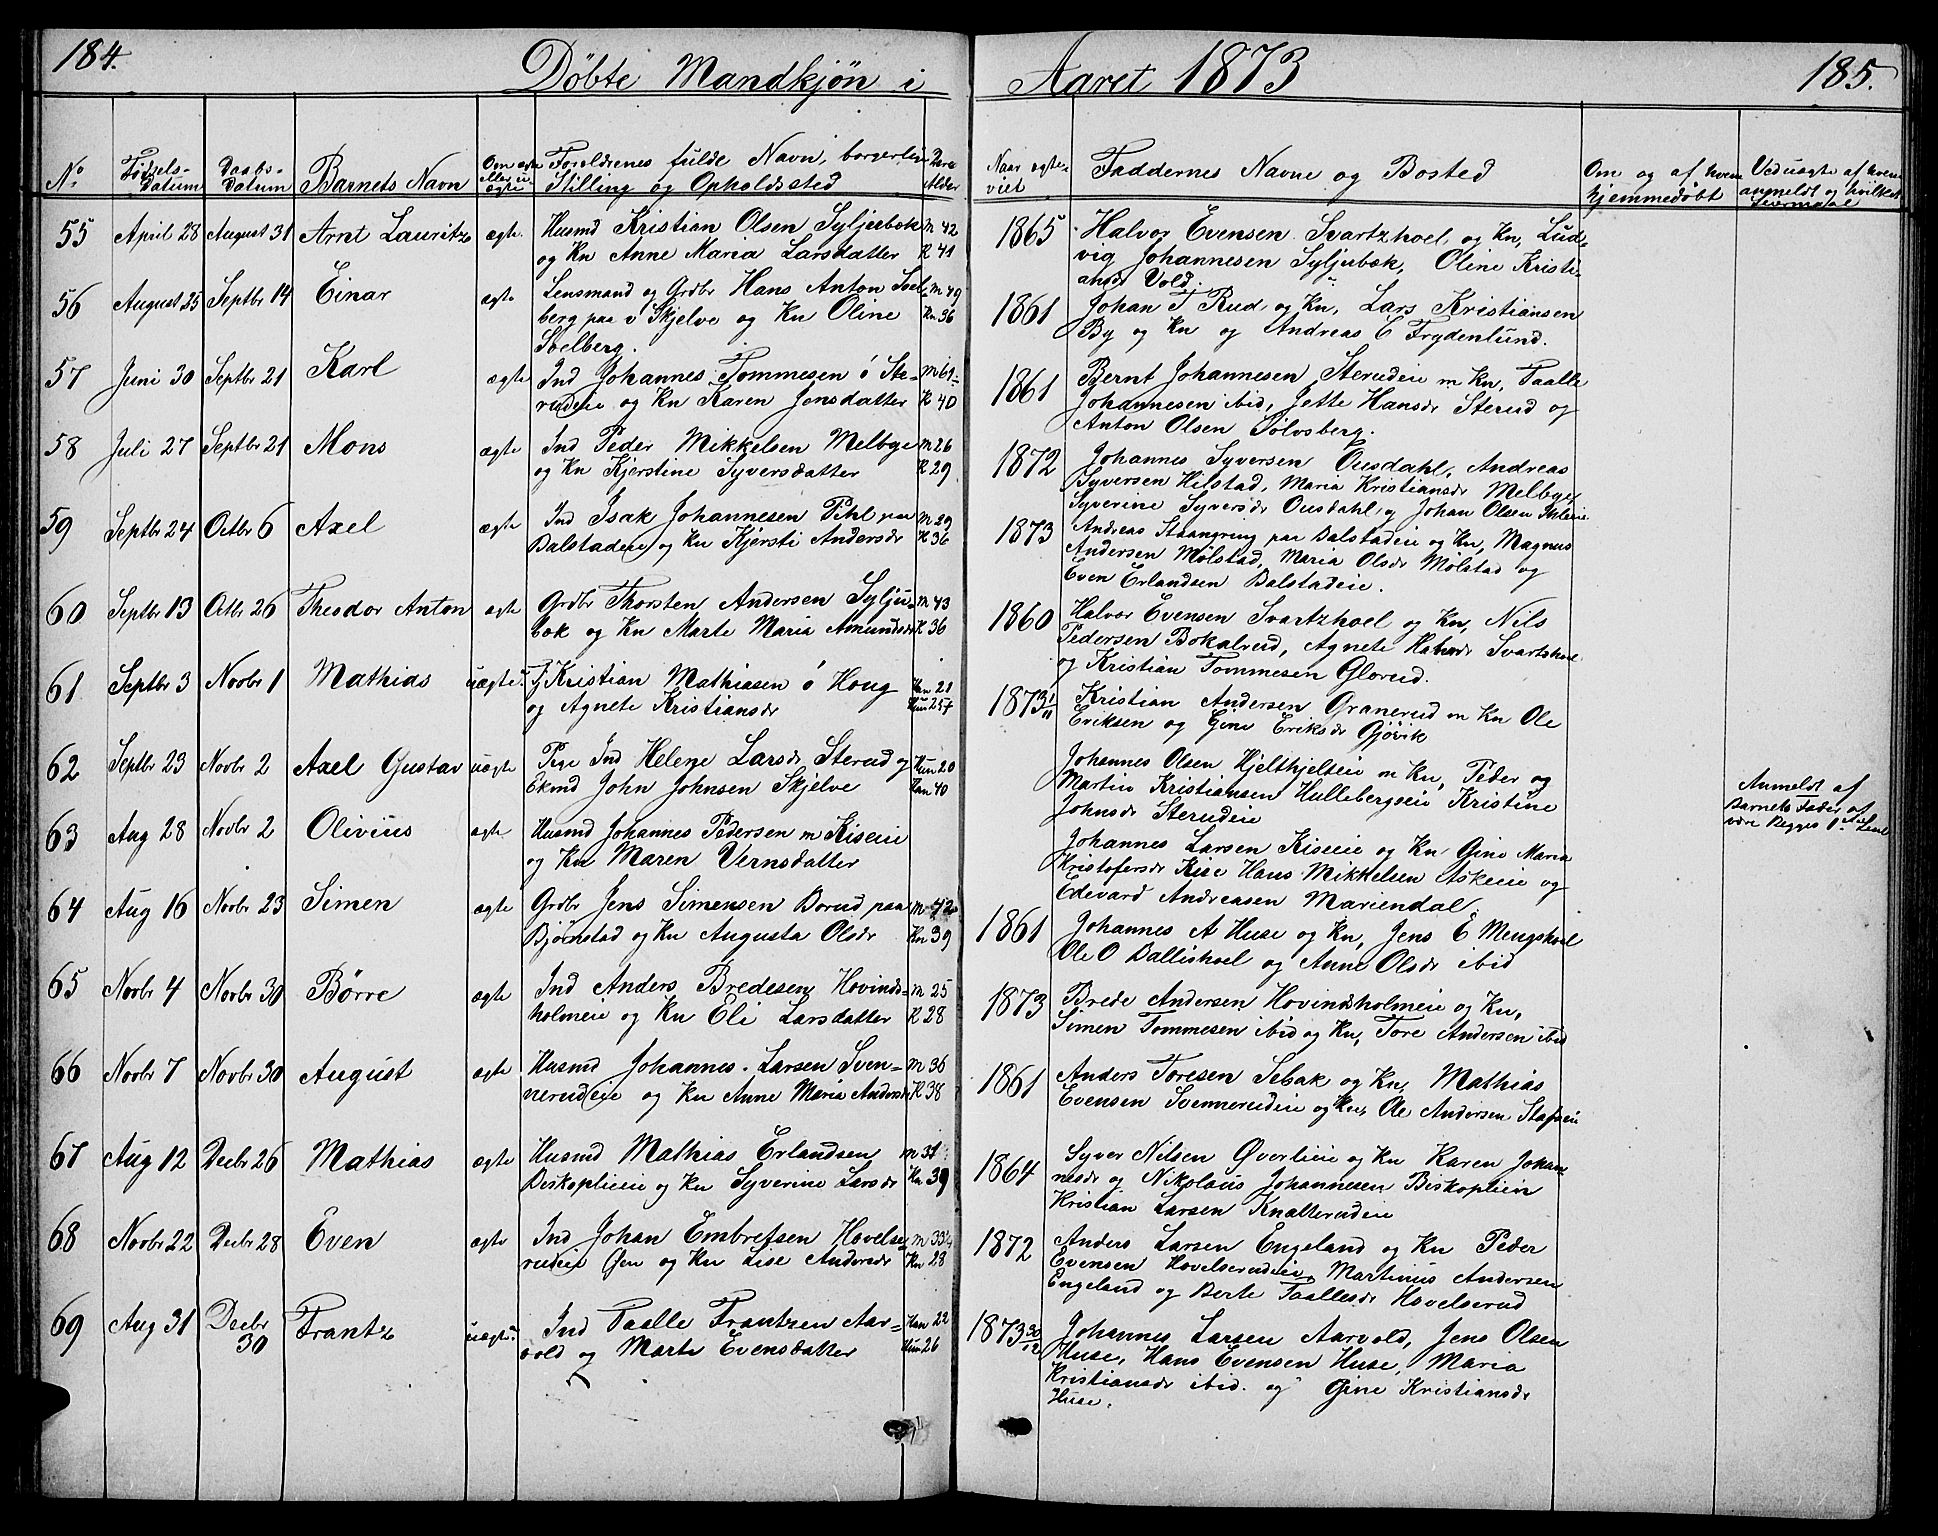 184.
Døbte Mandkjøn i
Aaret 1873
185.
No Fødsels-Datum Daabs-Datum Barnets Navn Om ægte eller uægte Forældrenes fulde Navn, borgerlig Stilling og Opholdssted Deres Alder
Naar ægteviet Faddernes Navne og Bosted Om og af hvem hjemmedøbt Ved uægte af hvem anmeldt og hvilket
55 April 28 August 31 Arnt Lauritz ægte. Husmd Kristian Olsen Syljubæk M 42
og Kn Anne Maria Larsdatter K 41
1865 Halvor Evensen Svartzhoel og Kn, Lud-
vig Johannesen Syljubæk, Oline Kristi-
ansdr Vold.
56 August 25 Septbr 14 Einar ægte Lensmand og Grdbr Hans Anton Soel- M 49
berg paa v Skjelve og Kn Oline Kn 36
Soelberg.
1861 Johan T Rud og Kn, Lars Kristiansen
By og Kn og Andreas E Frydenlund.
57 Juni 30 Septbr 21 Karl ægte Ind Johannes Tommesen ó Ste- M 61
rudeie og Kn Karen Jonsdatter K 40
1861 Bernt Johannesen Sterudeie m Kn, Taalle
Johannesen ibid, Jette Hansdr Sterud og
Anton Olsen Sølvsberg.
58 Juli 27 Septbr 21 Mons ægte Ind Peder Mikkelsen Melbye M 26
og Kn Kjerstine Syversdatter K 29
1872 Johannes Syversen Ousdahl, Andreas
Syversen Hilstad, Maria Kristiansdr Melbye,
Syverine Syversdr Ousdahl og Johan Olsen
59 Septbr 24 Octbr 6 Axel ægte Ind Isak Johannesen Pihl paa M 29
Balstadeie og Kn Kjersti Andersdr K 36
1873 Andreas Staangring paa Balstadeie og Kn, Magnus
Andersen Mølstad, Maria Olsdr Mølstad og
Even Erlandsen Balstadeie.
60 Septbr 13 Octbr 26 Theodor Anton ægte Grdbr Thorsten Andersen Sylju- M 43
bæk og Kn Marte Maria Amundsdr K 36
1860 Halvor Evensen Svartzhoel og Kn, Nils
Pedersen Bokalrud, Agnete Svartshoel
og Kristian Tommesen Glorud.
61 Septbr 3 Novbr 1 Mathias uægte. Tj Kristian Mathiasen ó Houg Han 21
og Agnete Kristiansdr Hun 25
1873 1/11 Kristian Andersen Granerud m Kn Ole
Eriksen og Gine Eriksdr Gjøvik
62 Septbr 23 Novbr 2 Axel Gustav uægte Pige Ind Helene Larsdr Sterud og Hun 20
Ekmd John Johnsen Skjelve Han 40
Johannes Olsen Hjelthjelteie m Kn, Peder og
Martin Kristiansen Hullebergseie Kristine
Johnsdr Sterudeie
Anmeldt af
Barnets Fader, at
være Begges 1ste
63 Aug 28 Novbr 2 Olivius ægte Husmd Johannes Pedersen m Kiseeie
og Kn Maren Vernsdatter
Johannes Larsen Kiseeie og Kn Gine Maria
Kristofersdr Kise Hans Mikkelsen Askeeie og
Edevard Andreasen Mariendal.
64 Aug 16 Novbr 23 Simen ægte Grdbr Jens Simensen Borud paa M 42
Bjørnstad og Kn Augusta Olsdr Kn 39
1861 Johannes A Huse og Kn, Jens E Mengshoel
Ole O Ballishoel og Anne Olsdr ibid
65 Novbr 4 Novbr 30 Børre ægte Ind Anders Bredesen Hovinds- M 25
holmeie og Kn Eli Larsdatter K 28
1873 Brede Andersen Hovindsholmeie og Kn,
Simen Tommesen ibid og Kn, Tore Andersen ibid
66 Novbr 7 Novbr 30 August ægte Husmd Johannes Larsen Sven- M 36
nerudeie og Kn Anne Maria Andersdr K 38
1861 Anders Toresen Sebak og Kn, Mathias
Evensen Svennerudeie og Kn, Ole Andersen
67 Aug 12 Decbr 26 Mathias ægte Husmd Mathias Erlandsen M 31
Biskoplieie og Kn Syverine Larsdr Kn 39
1864 Syver Nilsen Øverlieie og Kn Karen Johan-
nesdr og Nikolaus Johannesen Biskoplieie
Kristian Larsen Knatterudeie
68 Novbr 22 Decbr 28 Even ægte Ind Johan Embretsen Hovelse- M 33
rudeie Øen og Kn Lise Andersdr Kn 28
1872 Anders Larsen Engeland og Kn Peder
Evensen Hovelserudeie, Martinus Andersen
Engeland og Berte Taallesdr Hovelserud
69 Aug 31 Decbr 30 Frantz uægte. Ind Taalle Frantzen Aar- Han 22
vold og Marte Evensdatter Hun 26
1873 30/12 Johannes Larsen Aarvold, Jens Olsen
Huse, Hans Evensen Huse, Maria
Kristiansdr ibid. og Gine Kristiansdr
Huse.